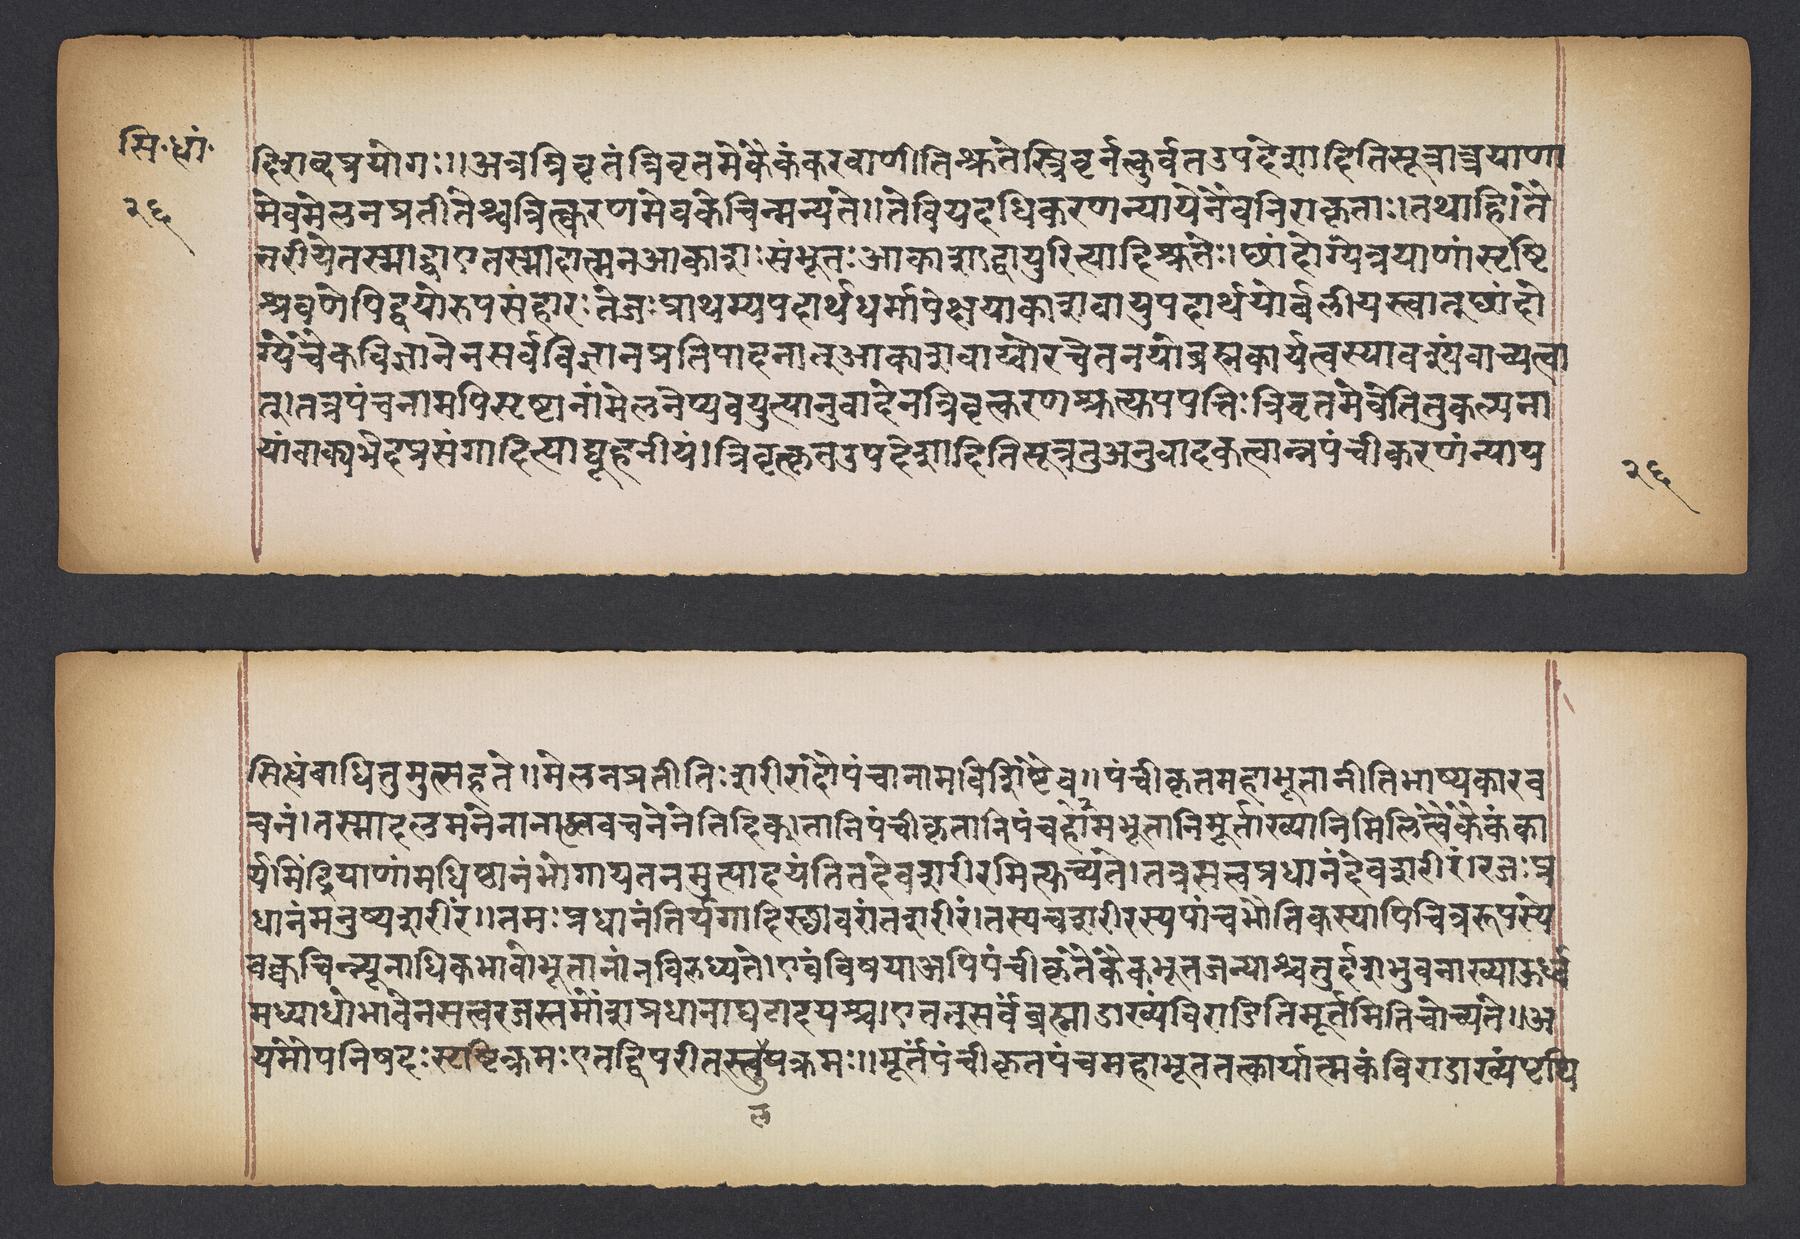 सि॰धां॰
२६
दिशब्दप्रयोगः॥अत्रत्रिवृतंत्रिवृतमेकैकंकरवाणीतिश्रुतेस्त्रिवृर्त्नत्कुर्वतउपदेशादितिसूत्राच्चत्रयाणा
मेवमेलनप्रतीतेश्चत्रित्त्करणमेवकेचिन्मन्यते॥तेवियदधिकरणन्यायेनैवनिराकृताः।तथाहि।तै
त्तरीयेतस्माद्वाएतस्मादात्मनआकाशःसंभूतःआकाशाद्वायुरित्यादिश्रुतेः।छांदोग्येत्रयाणांसृष्टि
श्रवणेपिद्वयोरुपसंहारःतेजःप्राथम्यपदार्थधर्मापेक्षयाकाशवायुपदार्थयोर्बलीयस्त्वात्छांदो
ग्येचैकविज्ञानेनसर्वविज्ञानप्रतिपादनात्आकाशवाय्वोरचेतनयोब्रह्मकार्यत्वस्यावश्यंवाच्यत्वा
त्।तत्रपंचनामपिसृष्टानांमेलनेप्यवयुत्यानुवादेनत्रिवृत्करणश्रुत्युपपत्तिःत्रिवृतमेवेतितुकल्पना
यांवाक्यभेदप्रसंगादित्याद्यूहनीयं।त्रिवृत्कृतउपदेशादितिसूत्रतुअनुवादकत्वान्नपंचीकरणंन्याय
२६
सिद्धंबाधितुमुत्सहते॥मेलनप्रतीतिःशरीरादौपंचानामविशिष्टैव॥पंचीकृतमहाभूतानीतिभाष्यकारव
चनं।तस्मादलमनेनानात्मवचनेनेतिदिक्।तानिपंचीकृतानिपंचहामभूतानिमूर्ताख्यानिमिलित्वैकैकंका
र्यमिंद्रियाणांमधिष्ठानंभोगायतनमुत्पादयंतितदेवशरीरमित्युच्यंते।तत्रसत्वप्रधानंदेवशरीरं।रजःप्र
धानंमनुष्यशरीरं॥तमःप्रधानंतिर्यगादिस्थावरांतशरीरं।तस्यचशरीरस्यपांचभौतिकस्यापिचित्ररूपस्ये
वक्वचिन्न्यूनाधिकभावोभूतानांनविरुध्यते।एवंविषयाअपिपंचीकृतैकैकभूतजन्याश्चतुर्दशभुवनाख्याऊर्ध्व
मध्याधोभावेनसत्वरजस्तमोंशप्रधानाघटादयश्च।एतत्सर्वंब्रह्मांडाख्यंविराडितिमूर्तमितिचोच्यते॥अ
यमौपनिषदःसृष्टिक्रमःएतद्विपरीतस्त्तुपक्रमः॥मूर्तंपंचीकृतपंचमहाभूततत्कार्यात्मकंविराडाख्यंपृथि
ल